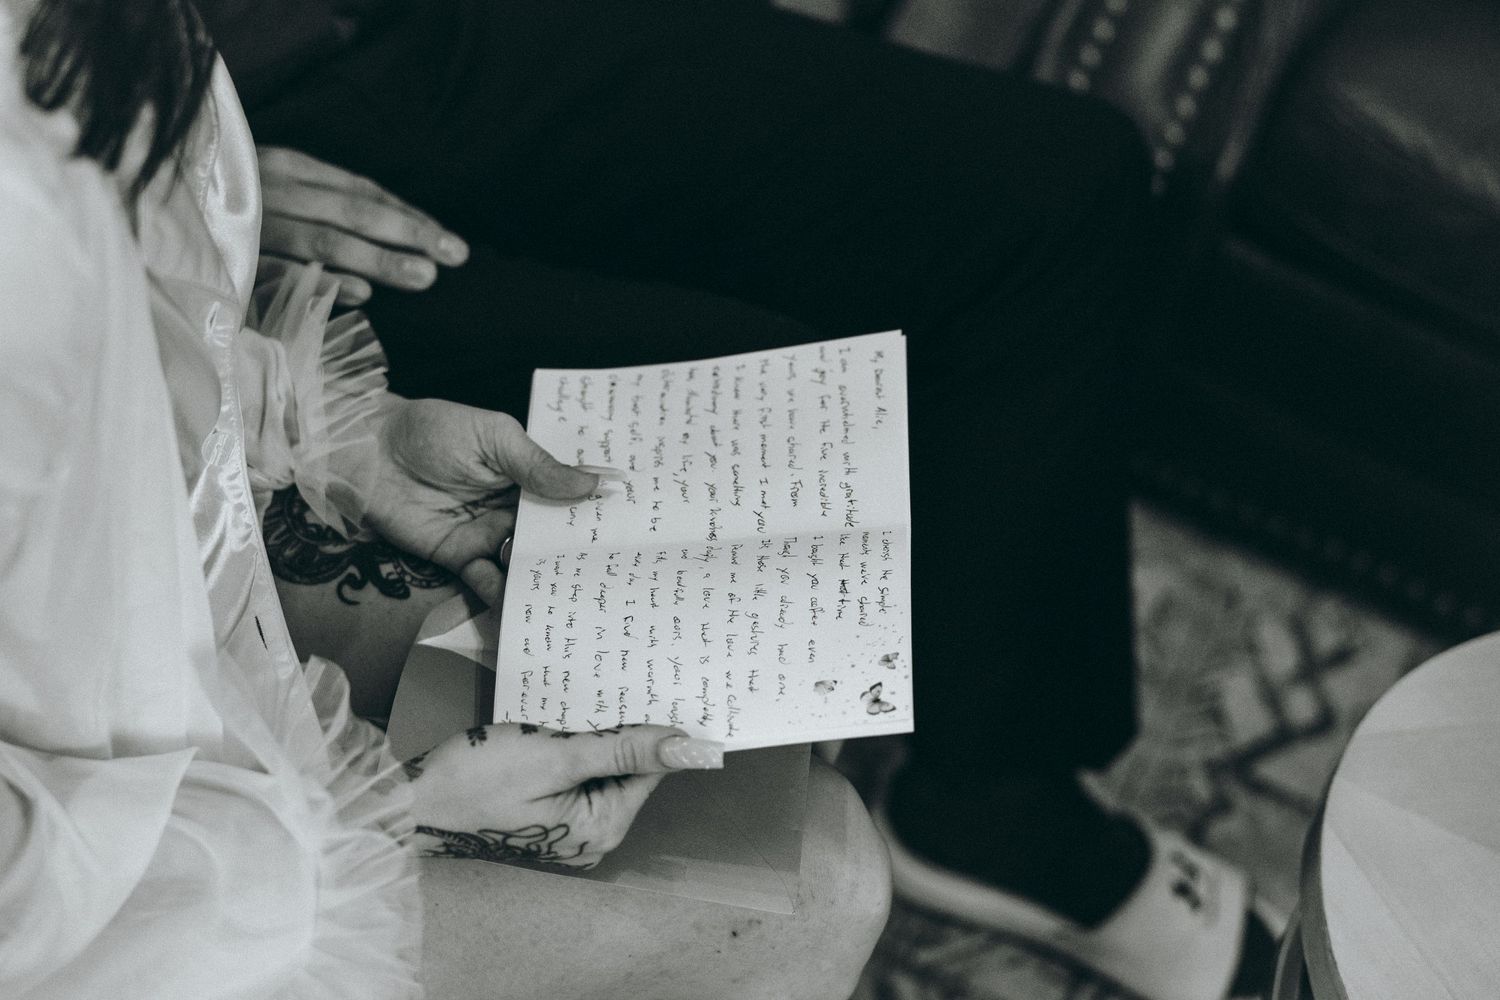 My Dearest
I am overwhelmed with gratitude
and joy for the five incredible
years we have shared. From
the very first moment I met you
I knew there was something
about you. your kindness
my life, your
determination inspires me to be
my best self, and your
support given me
strength to any
challenge
I cherish the simple
moments we've shared
like that time
I bought you coffee even
though you already had one.
It's those little gestures that
remind me of the love we cultivate
daily, a love that is completely
and beautifully ours. your
fills my heart with warmth
every day I find new reasons
to fall deeper in love with
As we step into this new
I want you to know that my
is yours now and forever